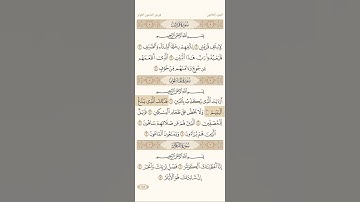 سُورَةُ قُرَيْشٍ
بِسْمِ اللَّهِ الرَّحْمَٰنِ الرَّحِيمِ
لِإِيلَافِ قُرَيْشٍ ١ إِيلَافِهِمْ رِحْلَةَ الشِّتَاءِ وَالصَّيْفِ ٢
فَلْيَعْبُدُوا رَبَّ هَٰذَا الْبَيْتِ ٣ الَّذِي أَطْعَمَهُم
مِّن جُوعٍ وَآمَنَهُم مِّنْ خَوْفٍ ٤
سُورَةُ المَاعُونِ
بِسْمِ اللَّهِ الرَّحْمَٰنِ الرَّحِيمِ
أَرَأَيْتَ الَّذِي يُكَذِّبُ بِالدِّينِ ١ فَذَٰلِكَ الَّذِي يَدُعُّ
الْيَتِيمَ ٢ وَلَا يَحُضُّ عَلَىٰ طَعَامِ الْمِسْكِينِ ٣ فَوَيْلٌ
لِّلْمُصَلِّينَ ٤ الَّذِينَ هُمْ عَن صَلَاتِهِمْ سَاهُونَ ٥
الَّذِينَ هُمْ يُرَاءُونَ ٦ وَيَمْنَعُونَ الْمَاعُونَ ٧
سُورَةُ الكَوْثَرِ
بِسْمِ اللَّهِ الرَّحْمَٰنِ الرَّحِيمِ
إِنَّا أَعْطَيْنَاكَ الْكَوْثَرَ ١ فَصَلِّ لِرَبِّكَ وَانْحَرْ ٢
إِنَّ شَانِئَكَ هُوَ الْأَبْتَرُ ٣